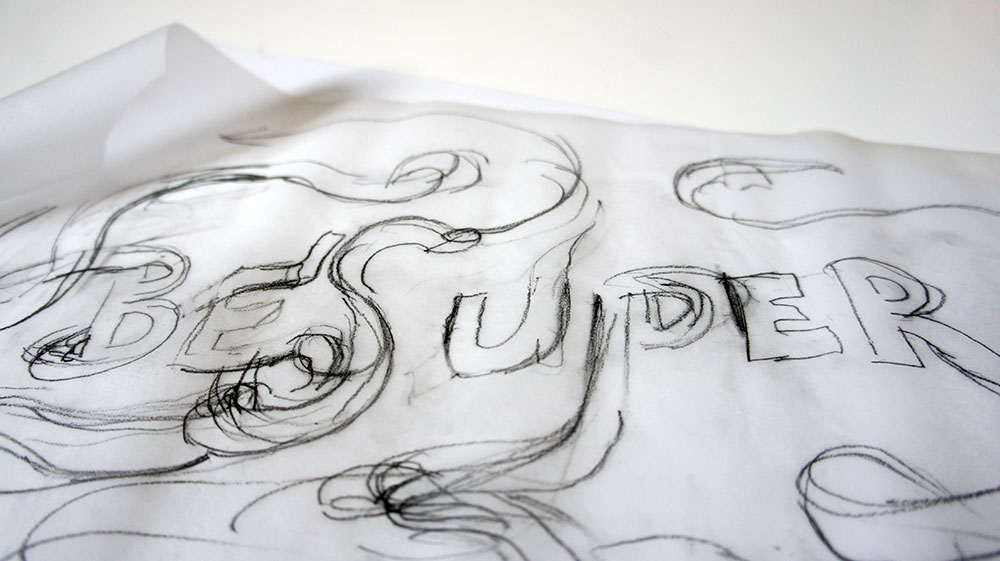 BE SUPER